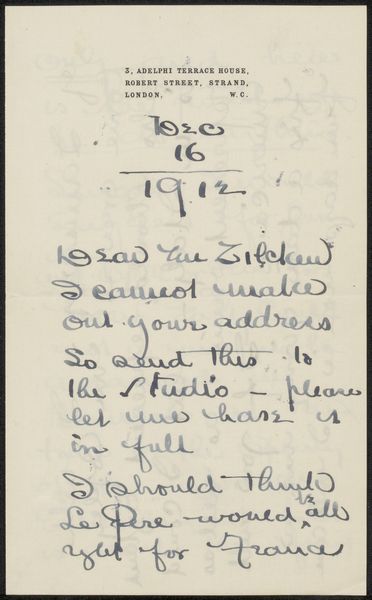 3, ADELPHI TERRACE HOUSE,
ROBERT STREET, STRAND,
LONDON, W.C.
Dec
16
1912
Dear Mr Zilcken
I cannot make
out your address
So send this to
the Studio — please
let me have it
in full
I should think
Le Père would be all
right for France